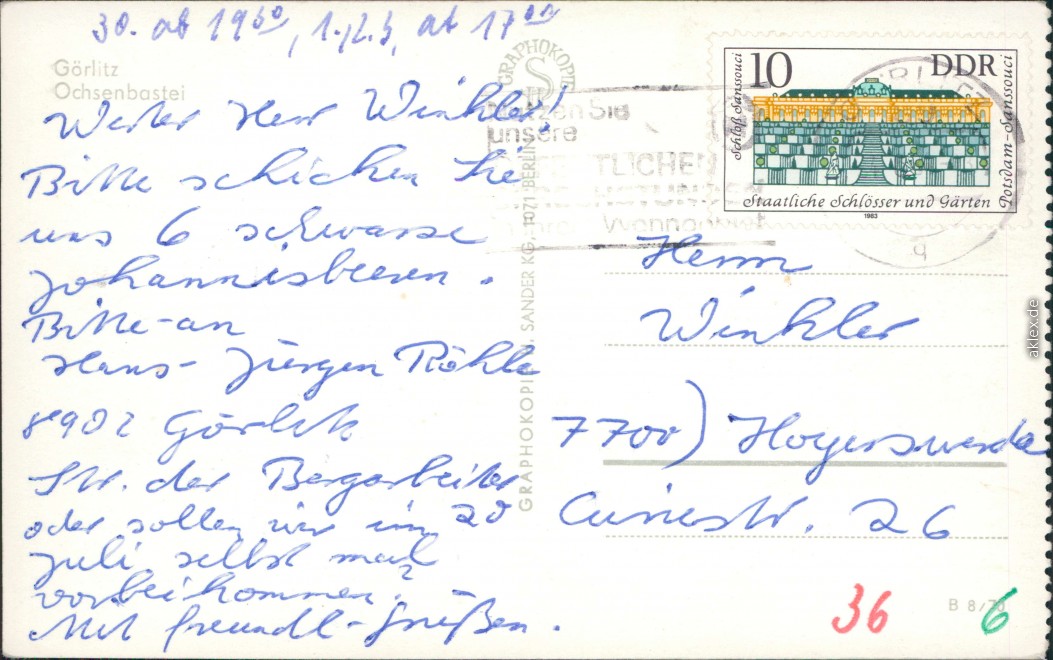 30. ab 19³⁰, 1./2.3, ab 17⁰⁰
Görlitz
Ochsenbastei
Werter Herr Winkler!
Bitte schicken Sie
uns 6 schwarze
Johannisbeeren.
Bitte-an
Hans-Jürgen Röhle
8902 Görlitz
Str. der Bergarbeiter
20
oder sollen wir im
Juli selbst mal
vorbeikommen.
Mit freundl-Grüßen.
GRAPHOKOPIE
GRAPHOKOPIE H. SANDER KG, 1071 BERLIN
Sie
unsere
10 DDR
Schloß Sanssouci
Potsdam-Sanssouci
Staatliche Schlösser und Gärten
1983
Herrn
Winkler
7700) Hoyerswerda
Curiestr. 26
36
B 8/70
6
aklex.de